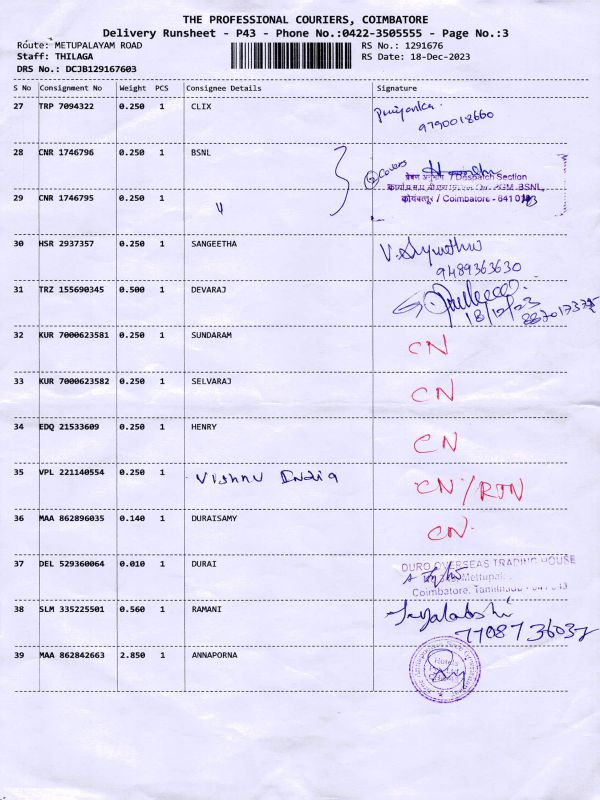 THE PROFESSIONAL COURIERS, COIMBATORE
Delivery Runsheet - P43 - Phone No.:0422-3505555 - Page No.:3
Route: METUPALAYAM ROAD RS No.: 1291676
Staff: THILAGA RS Date: 18-Dec-2023
DRS No.: DCJB129167603
S No Consignment No Weight PCS Consignee Details Signature
27 TRP 7094322 0.250 1 CLIX Priyanka
9790018660
28 CNR 1746796 0.250 1 BSNL
② Covers
प्रेषण अनुभाग / Despatch Section
PGM, BSNL,
कोयंबत्तूर / Coimbatore - 641 043
29 CNR 1746795 0.250 1 〃
30 HSR 2937357 0.250 1 SANGEETHA
9489363630
31 TRZ 155690345 0.500 1 DEVARAJ
18/12/23
32 KUR 7000623581 0.250 1 SUNDARAM CN
33 KUR 7000623582 0.250 1 SELVARAJ CN
34 EDQ 21533609 0.250 1 HENRY CN
35 VPL 221140554 0.250 1 Vishnu India CN/RTN
36 MAA 862896035 0.140 1 DURAISAMY CN
37 DEL 529360064 0.010 1 DURAI
DURO OVERSEAS TRADING HOUSE
Mettupal
Coimbatore, Tamilnadu
38 SLM 335225501 0.560 1 RAMANI
39 MAA 862842663 2.850 1 ANNAPORNA